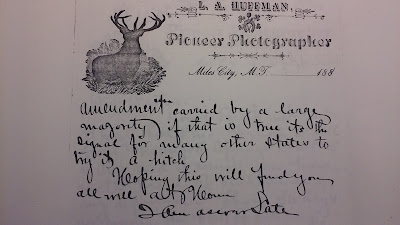 L. A. HUFFMAN,
Pioneer Photographer
Miles City, M.T. 188
Amendment carried by a large
majority if that is true its the
signal for many other States to
try it a hitch
Hoping this will find you
all well at Home
I am as ever Late